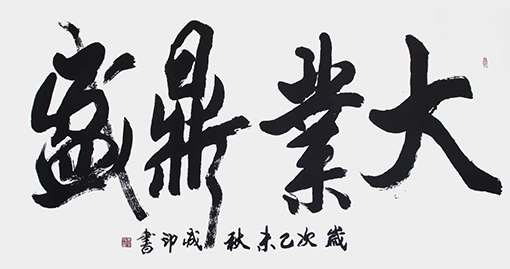 大業鼎盛
歲次乙未秋成印書